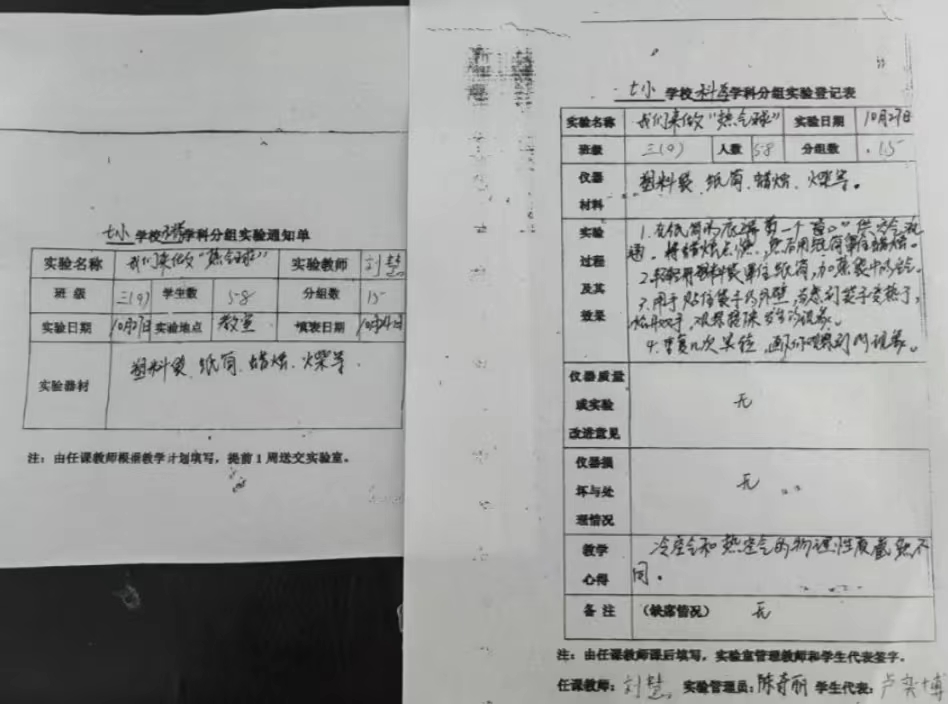 七小 学校科学学科分组实验通知单
实验名称 我们来做“热气球” 实验教师 刘慧
班 级 三(9) 学生数 58 分组数 15
实验日期 10月27日 实验地点 教室 填表日期 10月24日
实验器材 塑料袋、纸筒、蜡烛、火柴等.
注：由任课教师根据教学计划填写，提前1周送交实验室。
七小 学校科学学科分组实验登记表
实验名称 我们来做“热气球” 实验日期 10月27日
班级 三(9) 人数 58 分组数 15
仪器
材料
塑料袋、纸筒、蜡烛、火柴等。
实验
过程
及其
效果
1.在纸筒的底端剪一个 口 供空气流
通。将蜡烛点燃，然后用纸筒罩住蜡烛。
2.轻轻将塑料袋罩住纸筒，加热袋中的空气。
3.用手贴住袋子的外壁，当感到袋子变热了，
放开双手，观察 发生的现象。
4.重复几次实验， 观察到的现象。
仪器质量
或实验
改进意见
无
仪器损
坏与处
理情况
无
教学
心得
冷空气和热空气的物理性质截然不
同。
备 注 （缺席情况） 无
注：由任课教师课后填写，实验室管理教师和学生代表签字。
任课教师：刘慧 实验管理员：陈奇丽 学生代表：卢奕博